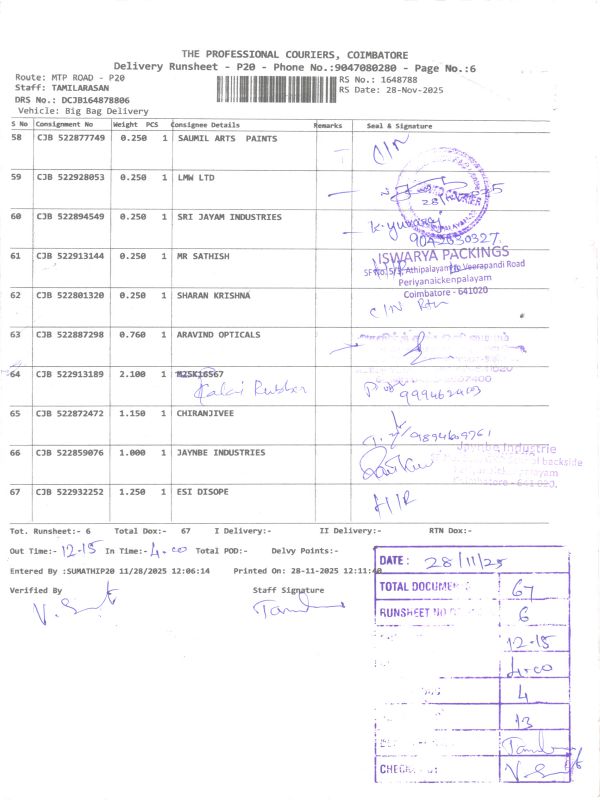 THE PROFESSIONAL COURIERS, COIMBATORE
Delivery Runsheet - P20 - Phone No.:9047080280 - Page No.:6
Route: MTP ROAD - P20
RS No.: 1648788
Staff: TAMILARASAN
RS Date: 28-Nov-2025
DRS No.: DCJB164878806
Vehicle: Big Bag Delivery
S No Consignment No Weight PCS Consignee Details Remarks Seal & Signature
58 CJB 522877749 0.250 1 SAUMIL ARTS PAINTS
59 CJB 522928053 0.250 1 LMW LTD
60 CJB 522894549 0.250 1 SRI JAYAM INDUSTRIES K. Yuvaraj
9042630327
61 CJB 522913144 0.250 1 MR SATHISH
ISWARYA PACKINGS
SF No. 5/3, Athipalayam to Veerapandi Road
Periyanaickenpalayam
Coimbatore - 641020
62 CJB 522801320 0.250 1 SHARAN KRISHNA C/N Rtn
63 CJB 522887298 0.760 1 ARAVIND OPTICALS
64 CJB 522913189 2.100 1 MZSK16567
Kalai Rubber
9994624103
65 CJB 522872472 1.150 1 CHIRANJIVEE
9894609761
66 CJB 522859076 1.000 1 JAYNBE INDUSTRIES
Jaynbe Industrie
backside
Coimbatore - 641 020.
67 CJB 522932252 1.250 1 ESI DISOPE
Tot. Runsheet:- 6 Total Dox:- 67 I Delivery:- II Delivery:- RTN Dox:-
Out Time:- 12-15 In Time:- 4.00 Total POD:- Delvy Points:-
Entered By :SUMATHIP20 11/28/2025 12:06:14 Printed On: 28-11-2025 12:11:40
Verified By Staff Signature
DATE: 28/11/25
TOTAL DOCUME 67
RUNSHEET NO 6
12-15
4.00
4
13
CHECK